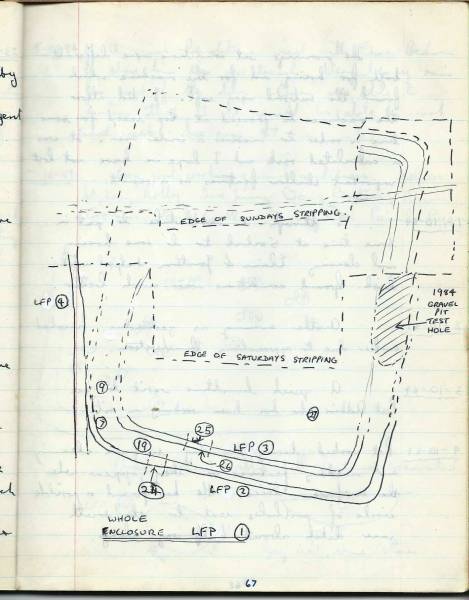 by
gent
EDGE OF SUNDAYS STRIPPING
LFP 4
1984
GRAVEL
PIT
TEST
HOLE
EDGE OF SATURDAYS STRIPPING
9
7
25
27
19
LFP 3
26
24
LFP 2
WHOLE
ENCLOSURE LFP 1
67